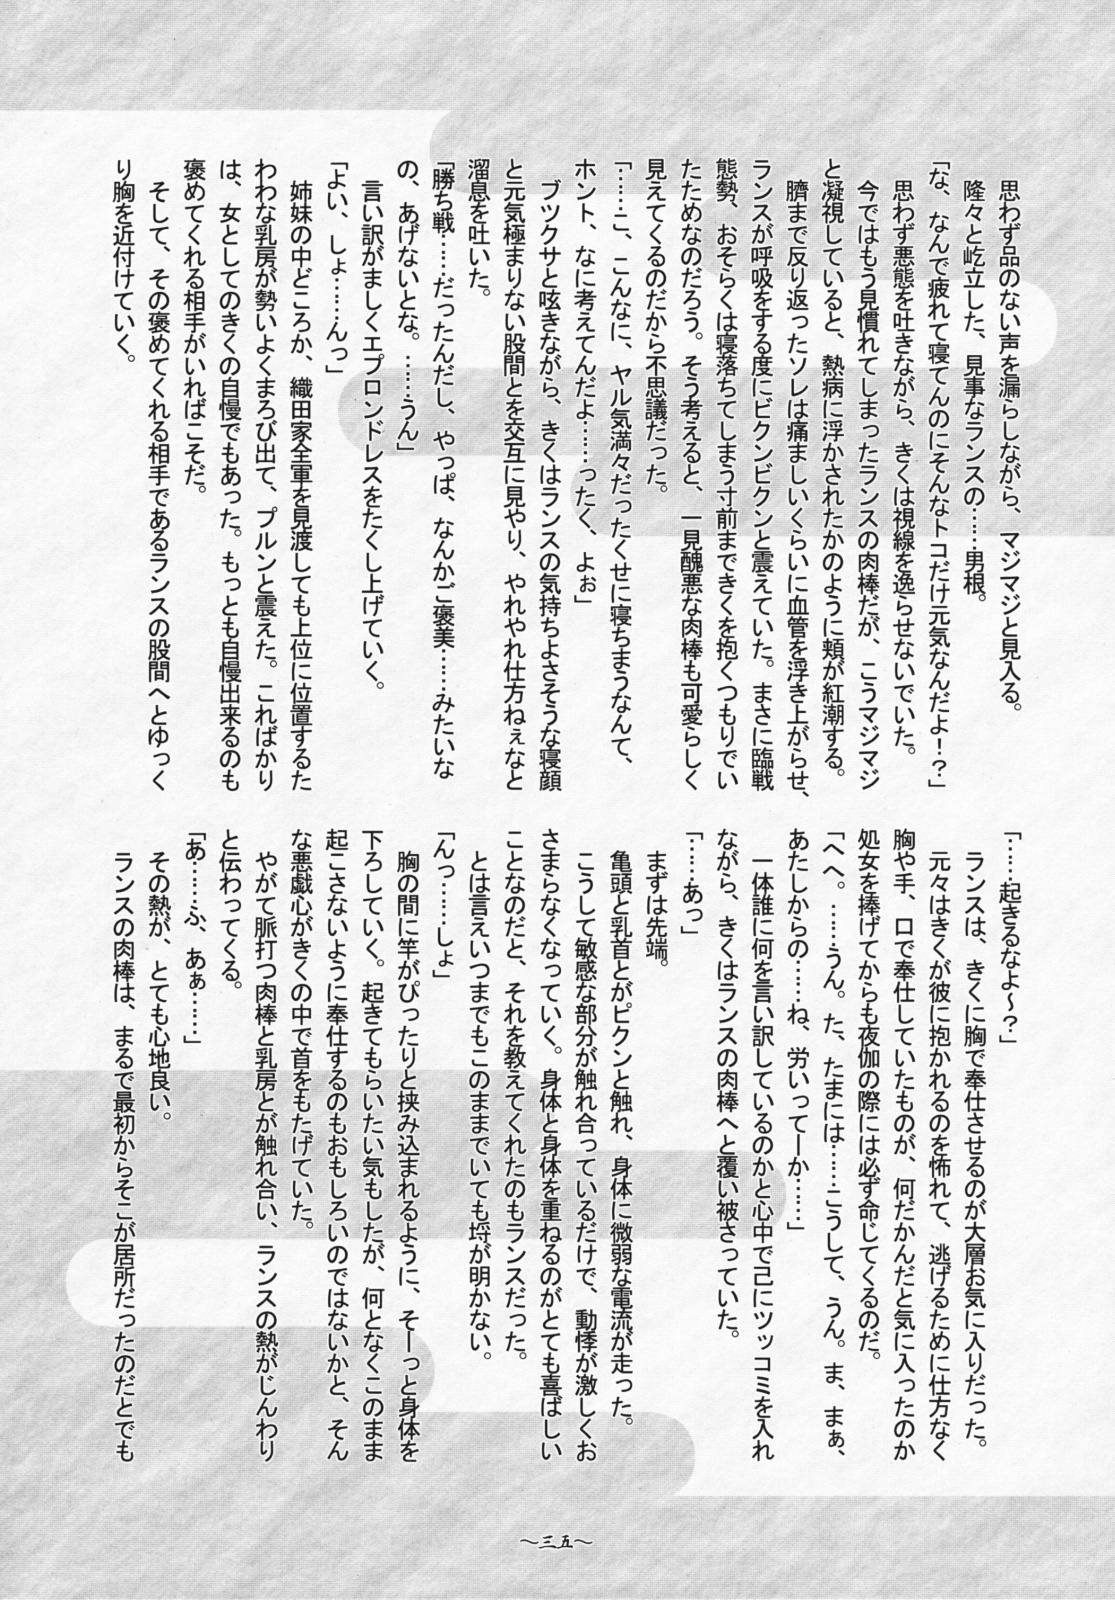 思わず品のない声を漏らしながら、マジマジと見入る。
　隆々と屹立した、見事なランスの……男根。
「な、なんで疲れて寝てんのにそんなトコだけ元気なんだよ！？」
　思わず悪態を吐きながら、きくは視線を逸らせないでいた。
　今ではもう見慣れてしまったランスの肉棒だが、こうマジマジ
と凝視していると、熱病に浮かされたかのように頬が紅潮する。
　臍まで反り返ったソレは痛ましいくらいに血管を浮き上がらせ、
ランスが呼吸をする度にビクンビクンと震えていた。まさに臨戦
態勢、おそらくは寝落ちてしまう寸前まできくを抱くつもりでい
たためなのだろう。そう考えると、一見醜悪な肉棒も可愛らしく
見えてくるのだから不思議だった。
「……こ、こんなに、ヤル気満々だったくせに寝ちまうなんて、
ホント、なに考えてんだよ……ったく、よぉ」
　ブツクサと呟きながら、きくはランスの気持ちよさそうな寝顔
と元気極まりない股間とを交互に見やり、やれやれ仕方ねぇなと
溜息を吐いた。
「勝ち戦……だったんだし、やっぱ、なんかご褒美……みたいな
の、あげないとな。……うん」
　言い訳がましくエプロンドレスをたくし上げていく。
「よい、しょ……んっ」
　姉妹の中どころか、織田家全軍を見渡しても上位に位置するた
わわな乳房が勢いよくまろび出て、プルンと震えた。こればかり
は、女としてのきくの自慢でもあった。もっとも自慢出来るのも
褒めてくれる相手がいればこそだ。
　そして、その褒めてくれる相手であるランスの股間へとゆっく
り胸を近付けていく。
「……起きるなよ～？」
　ランスは、きくに胸で奉仕させるのが大層お気に入りだった。
　元々はきくが彼に抱かれるのを怖れて、逃げるために仕方なく
胸や手、口で奉仕していたものが、何だかんだと気に入ったのか
処女を捧げてからも夜伽の際には必ず命じてくるのだ。
「へへ。……うん。た、たまには……こうして、うん。ま、まぁ、
あたしからの……ね、労いってーか……」
　一体誰に何を言い訳しているのかと心中で己にツッコミを入れ
ながら、きくはランスの肉棒へと覆い被さっていた。
「……あっ」
　まずは先端。
　亀頭と乳首とがピクンと触れ、身体に微弱な電流が走った。
　こうして敏感な部分が触れ合っているだけで、動悸が激しくお
さまらなくなっていく。身体と身体を重ねるのがとても喜ばしい
ことなのだと、それを教えてくれたのもランスだった。
　とは言えいつまでもこのままでいても埒が明かない。
「んっ……しょ」
　胸の間に竿がぴったりと挟み込まれるように、そーっと身体を
下ろしていく。起きてもらいたい気もしたが、何となくこのまま
起こさないように奉仕するのもおもしろいのではないかと、そん
な悪戯心がきくの中で首をもたげていた。
　やがて脈打つ肉棒と乳房とが触れ合い、ランスの熱がじんわり
と伝わってくる。
「あ……ふ、あぁ……」
　その熱が、とても心地良い。
　ランスの肉棒は、まるで最初からそこが居所だったのだとでも
～三五～